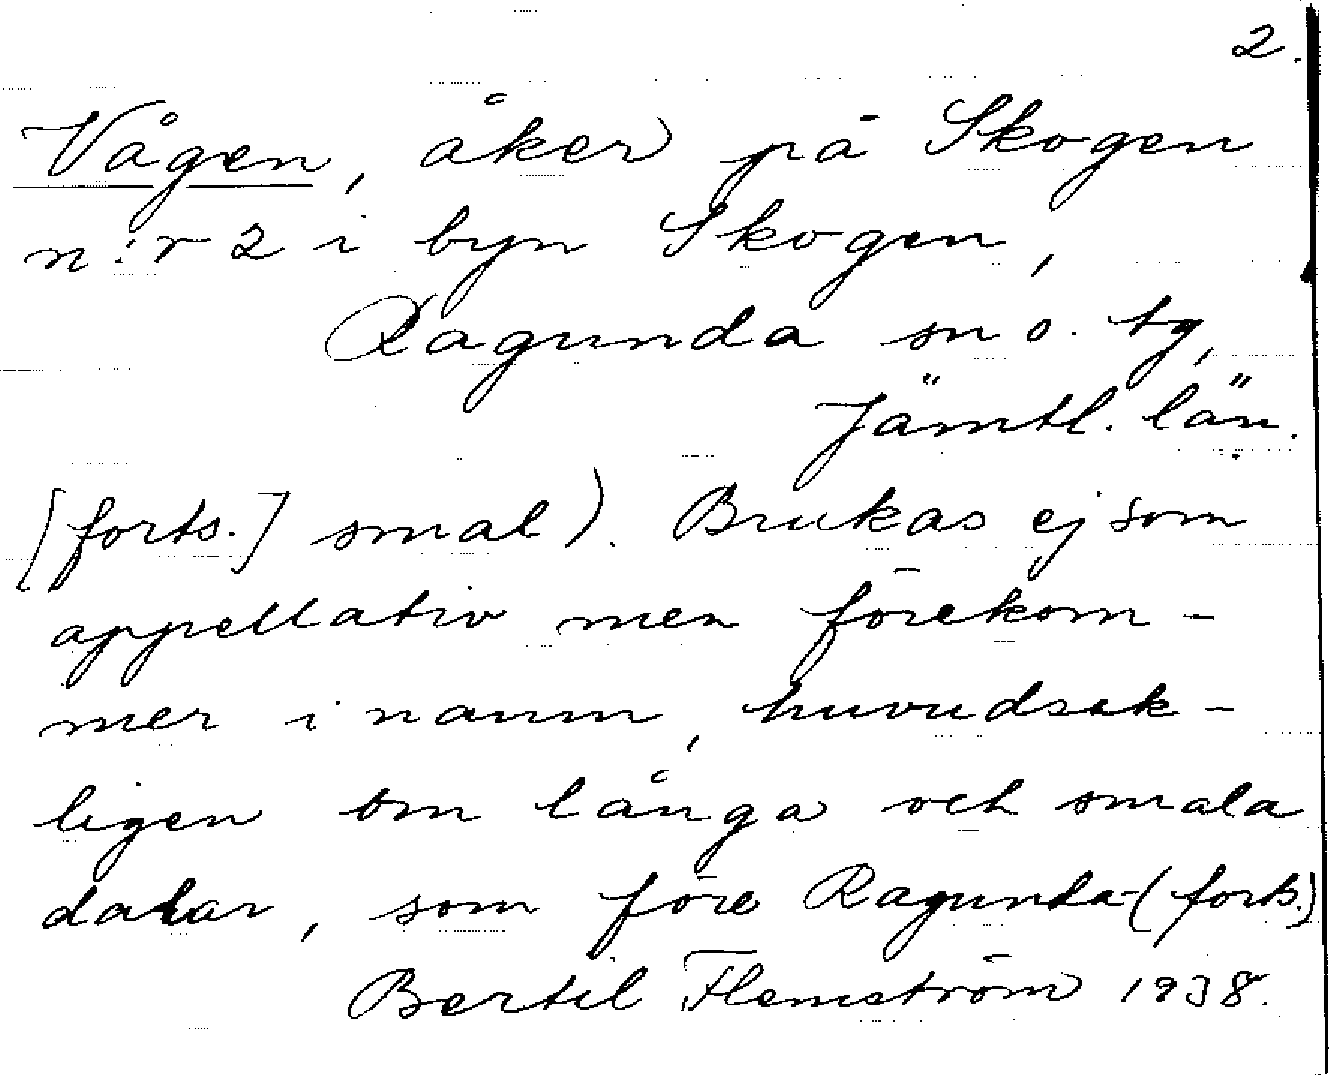 2.
Vågen, åker på Skogen
n:r 2 i byn Skogen,
Ragunda sn o. tg,
Jämtl. län.
[forts.] smal). Brukas ej som
appellativ men förekom-
mer i namn, huvudsak-
ligen om långa och smala
dalar, som före Ragunda-(forts.)
Bertil Flemström 1938.